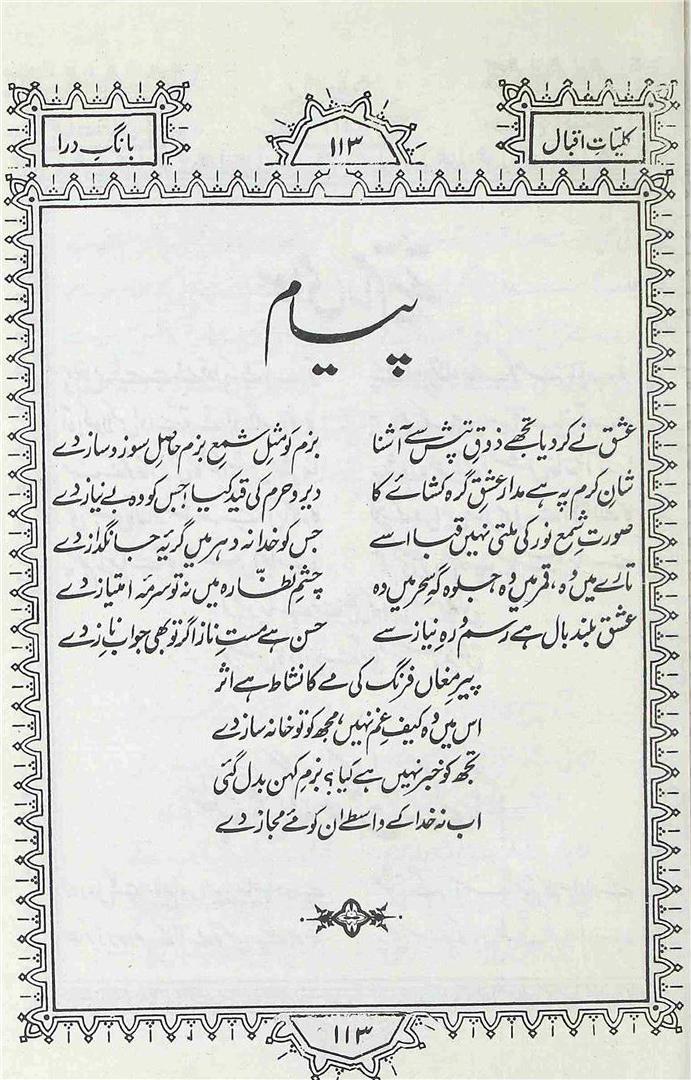 کلیّاتِ اقبال
۱۱۳
بانگِ درا
پیام
عشق نے کر دیا تجھے ذوقِ تپش سے آشنا
بزم کو مثلِ شمعِ بزم حاصلِ سوز و ساز دے
شانِ کرم پہ ہے مدار عشقِ گرہ کشاے کا
دیر و حرم کی قید کیا! جس کو وہ بے نیاز دے
صورتِ شمع نور کی ملتی نہیں قبا اسے
جس کو خدا نہ دہر میں گریۂ جانگداز دے
تارے میں وہ، قمر میں وہ، جلوہ گہِ سحر میں وہ
چشمِ نظّارہ میں نہ تو سرمۂ امتیاز دے
عشق بلند بال ہے رسم و رہِ نیاز سے
حسن ہے مستِ ناز اگر تو بھی جوابِ ناز دے
پیرِ مغاں فرنگ کی مے کا نشاط ہے اثر
اس میں وہ کیفِ غم نہیں، مجھ کو تو خانہ ساز دے
تجھ کو خبر نہیں ہے کیا؟ بزمِ کہن بدل گئی
اب نہ خدا کے واسطے ان کو مئے مجاز دے
۱۱۳